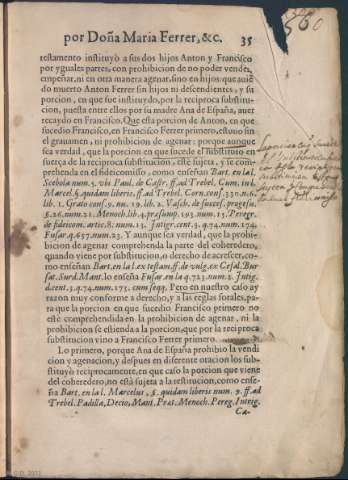 por Doña Maria Ferrer, &c. 35
testamento instituyò a sus dos hijos Anton y Francisco
por yguales partes, con prohibicion de no poder vender,
empeñar, ni en otra manera agenar, sino en hijos: que auiē
do muerto Anton Ferrer sin hijos ni descendientes, y su
porcion, en que fue instituydo, por la reciproca substitu-
cion, puesta entre ellos por su madre Ana de España, auer
recaydo en Francisco. Que esta porcion de Anton, en que
sucedio Francisco, en Francisco Ferrer primero, estuuo sin
el grauamen, ni prohibicion de agenar: porque aunque
sea verdad, que la porcion en que sucede el substituto en
fuerça de la reciproca substitucion, estè sujeta, y se com-
prehenda en el fideicomisso, como enseñan Bart. en la l.
Sceuola num. 5. vis. Paul. de Castr. ff. ad Trebel. Cum, in l.
Marcel. §. quidam liberis, ff. ad Trebel. Corn. cons. 330. n. 6.
lib. 1. Grato cons. 9. nu. 19. lib. 2. Vasch. de success. progress.
§. 26. num. 21. Menoch. lib. 4. præsump. 193. num. 15. Peregr.
de fideicom. artic. 8. num. 13. Intrig. cent. 3. q. 74. num. 174.
Fusar. q. 457. num. 23. Y aunque sea verdad, que la prohibi-
cion de agenar comprehenda la parte del coheredero,
quando viene por substitucion, o derecho de acrescer, co-
mo enseñan Bart. en la l. ex testam. ff. de vulg. ex Cefal. Bur-
sat. Surd. Mant. lo enseña Fusar. en la q. 723. num. 2. Intrig.
d. cent. 3. q. 74. num. 173. cum seqq. Pero en nuestro caso ay
razon muy conforme a derecho, y a las reglas sorales, pa-
ra que la porcion en que sucedio Francisco primero no
estè comprehendida en la prohibicion de agenar, ni la
prohibicion se estienda a la porcion, que por la reciproca
substitucion vino a Francisco Ferrer primero.
Lo primero, porque Ana de España prohibio la vendi
cion y agenacion, y despues en diferente oracion los subs-
tituyò reciprocamente, en que caso la porcion que viene
del coheredero, no està sujeta a la restitucion, como ense-
ña Bart. en la l. Marcelus, §. quidam liberis num. 9. ff. ad
Trebel. Padilla, Decio, Mant. Pras. Menoch. Pereg. Intrig.
Ca-